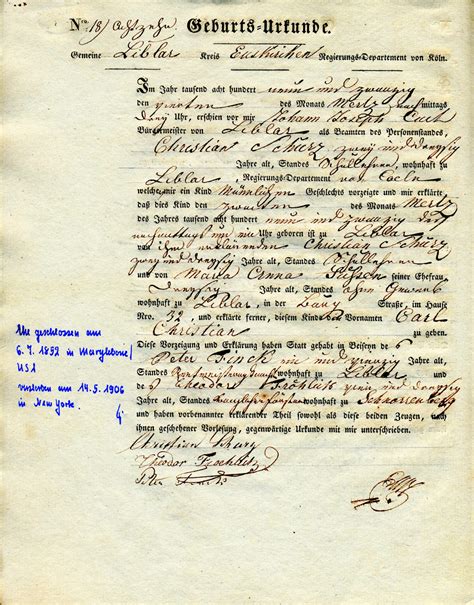 Nro 18 Achtzehn Geburts-Urkunde.
Gemeine Liblar Kreis Euskirchen Regierungs-Departement von Köln.
Im Jahr tausend acht hundert neun und zwanzig
den zweiten des Monats Mertz nachmittags
drey Uhr, erschien vor mir Johann Joseph
Bürgermeister von Liblar als Beamten des Personenstandes,
Christian Schurz zwey und dreyssig
Jahre alt, Standes Schullehrer, wohnhaft zu
Liblar, Regierungs-Departement von Coeln
welcher mir ein Kind Männlichen Geschlechts vorzeigte und mir erklärte,
daß dies Kind den zweiten des Monats Mertz
des Jahres tausend acht hundert neun und zwanzig des
nachmittags um ein Uhr geboren ist zu Liblar
von ihm erklärenden Christian Schurz
zwey und dreyssig Jahre alt, Standes Schullehrer
und von Maria Anna Jüssen seiner Ehefrau
dreyssig Jahre alt, Standes ohne Gewerb
wohnhaft zu Liblar, in der Burg Straße, im Hause
Nro. 32, und erklärte ferner, diesem Kinde den Vornamen Carl
Christian zu geben.
Diese Vorzeigung und Erklärung haben Statt gehabt in Beiseyn des
Peter Finck ein und vierzig Jahre alt,
Standes wohnhaft zu Liblar und
des Theodor Froehlitz und dreyssig
Jahre alt, Standes wohnhaft zu Schnorrenberg
und haben vorbenannter erklärender Theil sowohl als diese beiden Zeugen, nach
ihnen geschehener Vorlesung, gegenwärtige Urkunde mit mir unterschrieben.
Christian Schurz
Theodor Froehlitz
Peter Finck
Ehe geschlossen am
6. 7. 1852 in Marylebone/
USA
verstorben am 14.5.1906
in New York.